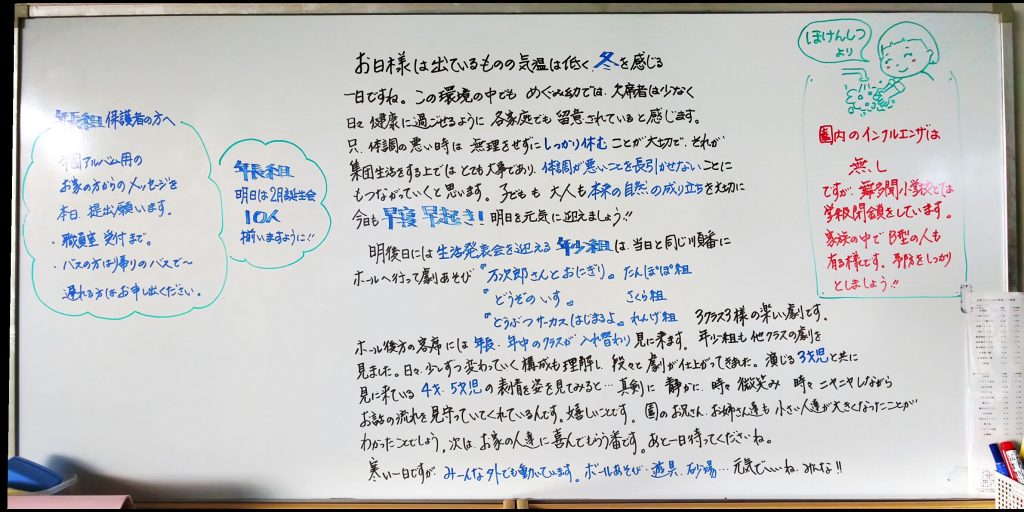 年長組 保護者の方へ
卒園アルバム用の
お家の方からのメッセージを
本日、提出願います。
・職員室受付まで。
・バスの方は帰りのバスで〜
遅れる方はお申し出ください。
年長組
明日は2月誕生会
10人
揃いますように!!
お日様は出ているものの気温は低く、冬を感じる
一日ですね。この環境の中でも めぐみ幼では、欠席者は少なく
日々健康に過ごせるように 各家庭でも留意されていると感じます。
只、体調の悪い時は 無理をせずにしっかり休むことが大切で、それが
集団生活をする上では とても大事であり、体調が悪いことを長引かせないことに
もつながっていくと思います。子どもも大人も本来の自然の成り立ちを大切に
今日も早寝早起き!明日を元気に迎えましょう!!
明後日には生活発表会を迎える年少組は、当日と同じ順番に
ホールへ行って劇あそび『万次郎さんとおにぎり』たんぽぽ組
『どうぞのいす。』 さくら組
『どうぶつサーカスはじまるよ。』れんげ組 3クラス3様の楽しい劇です。
ホール後方の客席には年長、年中のクラスが入れ替わり見に来ます。年少組も他クラスの劇を
見ました。日々、少しずつ変わっていく構成も理解し、段々と劇が仕上がってきました。演じる3才児と共に
見に来ている4才、5才児の表情を姿を見てみると…真剣に 静かに、時々微笑み 時々ニヤニヤしながら
お話の流れを見守っていてくれているんです。嬉しいことです。園のお兄さん、お姉さん達も小さい人達が大きくなったことが
わかったことでしょう。次は、お家の人達に喜んでもらう番です。あと一日待ってくださいね。
寒い一日ですが、みーんな外でも動いています。ボールあそび…遊具、砂場…元気でいいね、みんな!!
ほけんしつ
より
園内のインフルエンザは
無し
ですが、舞多聞小学校では
学級閉鎖をしています。
家族の中でB型の人も
有る様です。予防をしっかり
としましょう!!